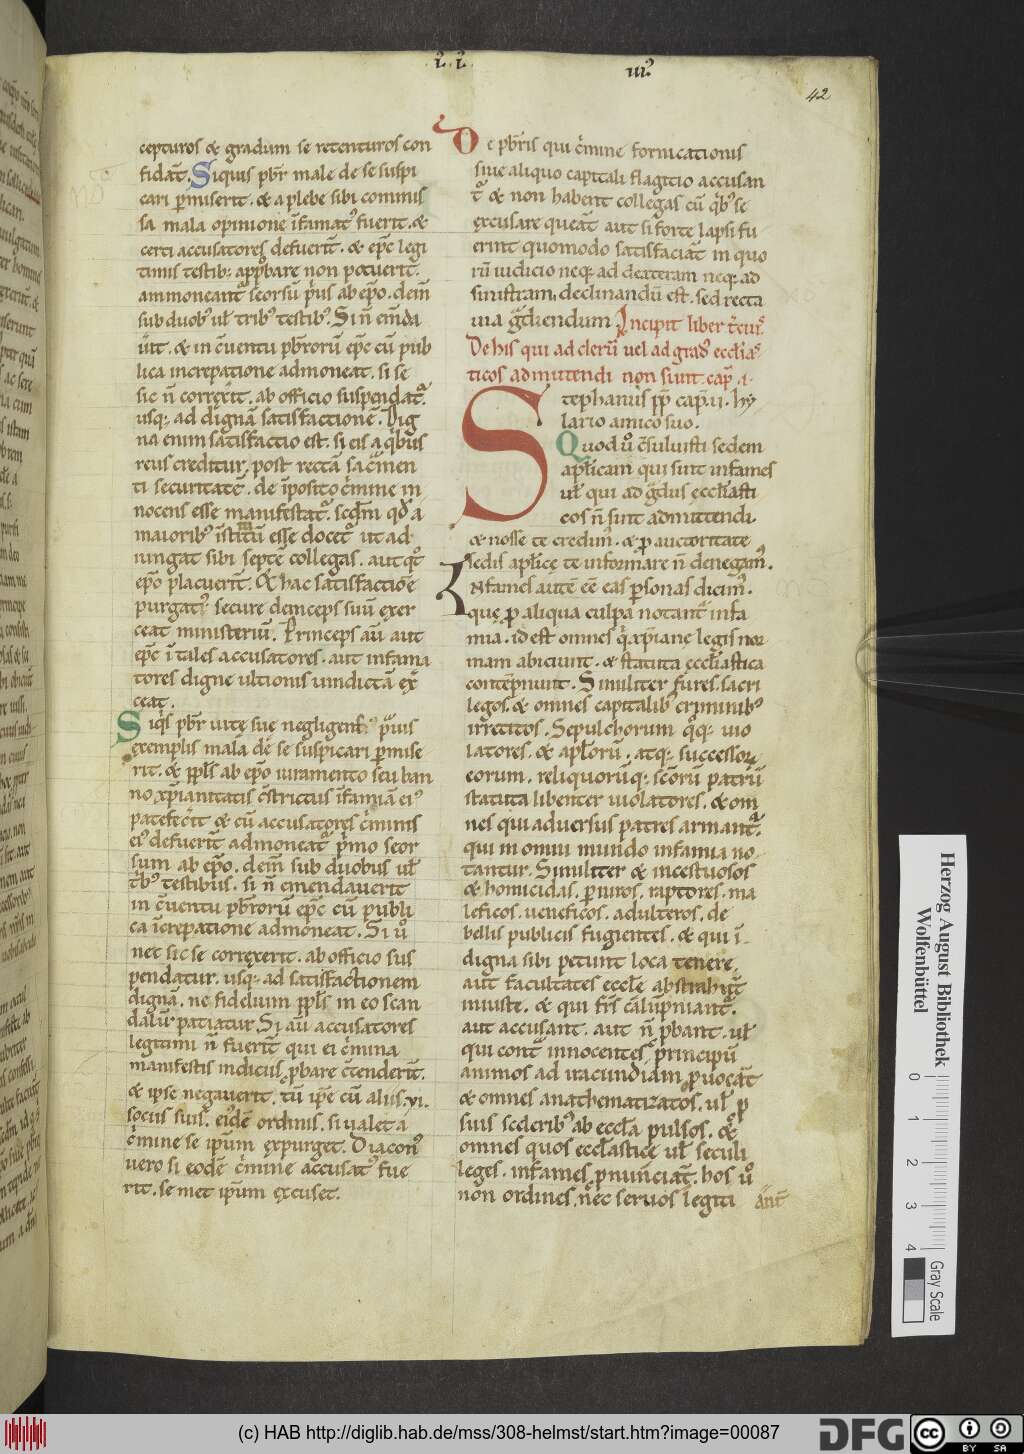 42
cepturos & gradum se retenturos con
fidāt. Siquis pbr̄ male de se suspi
cari p̄miserit. & a plebe sibi commis
sa mala opinione īfamatꝰ fuerit. &
certi accusatores defuerīt. & ep̄c legi
timis testibꝫ app̄bare non potuerit.
ammoneant̄ seorsū p̄us ab ep̄o. dem̄
sub duobꝰ ul̄ tribꝰ testibꝰ. Si n̄ em̄da
ūit. & in c̄uentu pbr̄orū ep̄c cū pub
lica increpatione admoneat. si se
sic n̄ correx̄it. ab officio suspendat̄
usqꝫ ad dignā satisfactionē. Dig
na enim satisfactio est. si eis a qͥbus
reus creditur. post rectā sac̄men
ti securitatē. de īposito c̄mine in
nocens esse manifestat̄. scd̄m qd̄ a
maioribꝰ īstitutū esse docet̄ ut ad
iungat sibi septē collegas. aut qͦt
ep̄o placuerit. & hac satisfactiōe
purgatꝰ secure deinceps suū exer
ceat ministeriū. Princeps aū aut
ep̄c ī tales accusatores. aut infama
tores digne ultionis uindictā ex̄
ceat.
Siqͥs pbr̄ uite sue negligens p̄uis
exemplis mala de se suspicari p̄mise
rit. & ppl̄s ab ep̄o iuramento seu ban
no xp̄ianitatis c̄strictus īfamiā eiꝰ
patefec̄it & cū accusatores c̄minis
eiꝰ defuerīt admoneat̄ p̄mo seor
sum ab ep̄o. dem̄ sub duobus ul̄
t̄bꝰ testibus. si n̄ emendauerit
in c̄uentu pbr̄orū ep̄c cū publi
ca īcrepatione admoneat. Si ūo
nec sic se correxerit. ab officio sus
pendatur. usqꝫ ad satisfactionem
dignā. ne fidelium ppl̄s in eo scan
dalū patiatur. Si aū accusatores
legitimi n̄ fuerīt qui ei c̄mina
manifestis indiciis p̄bare c̄tenderīt.
& ipse negauerit. tū ip̄e cū aliis. vi.
sociis suis. eiꝰdē ordinis. si ualet a
c̄mine se ip̄um expurget. Diaconꝰ
uero si eodē c̄mine accusatꝰ fue
rit. se met ip̄um excuset.
De pbr̄is qui c̄mine fornicationis
siue aliquo capitali flagitio accusan
t̄ & non habent collegas cū qͥbꝰ se
excusare queāt aut si forte lapsi fu
erint quomodo satisfaciāt in quo
rū iudicio neqꝫ ad dexteram neqꝫ ad
sinistram declinandū est. sed recta
uia g̃diendum. Incipit liber t̄ciuꝰ.
De his qui ad clerū uel ad gradꝰ eccl̄ias
ticos admittendi non sunt. cap̄. i.
Stephanus pp̄ cap̄ vi. hy
lario amico suo.
Quod ūo c̄suluisti sedem
apl̄icam qui sint infames
ul̄ qui ad g̃dus eccl̄iasti
cos n̄ sint admittendi.
& nosse te credimꝰ. & p̱ auctoritate
sedis apl̄ice te informare n̄ denegamꝰ.
Infames autē eē eas p̱sonas dicimꝰ.
que p̱ aliqua culpa notant̄ infa
mia. id est omnes qͥ xp̄iane legis nor
mam abiciunt. & statuta eccl̄iastica
contēpnunt. Similiter fures. sacri
legos. & omnes capitalibꝰ criminibꝰ
irretitos. Sepulchorum qͦqꝫ uio
latores. & apl̄orū. atqꝫ successorꝝ
eorum. reliquorūqꝫ sc̄orū patrū
statuta libenter uiolatores. & om
nes qui aduersus patres armant̄.
qui in omni mundo infamia no
tantur. Similiter & incestuosos
& homicidas. p̱iuros. raptores. ma
leficos. ueneficos. adulteros. de
bellis publicis fugientes. & qui ī
digna sibi petunt loca tenere.
aut facultates eccl̄e abstrahūt
iniuste. & qui fr̄s cal̄ūpniant̄.
aut accusant. aut n̄ p̱bant. ul̄
qui cont̄ innocentes principū
animos ad iracundiam p̱uocāt
& omnes anathematizatos. ul̄ p̱
suis scleribꝰ ab eccl̄a pulsos. &
omnes quos eccl̄astice ul̄ seculi
leges. infames p̱nunciāt̄. hos ūo
non ordines. nec seruos legiti
Herzog August Bibliothek
Wolfenbüttel
0 1 2 3 4
Gray Scale
(c) HAB http://diglib.hab.de/mss/308-helmst/start.htm?image=00087
DFG
cc BY SA